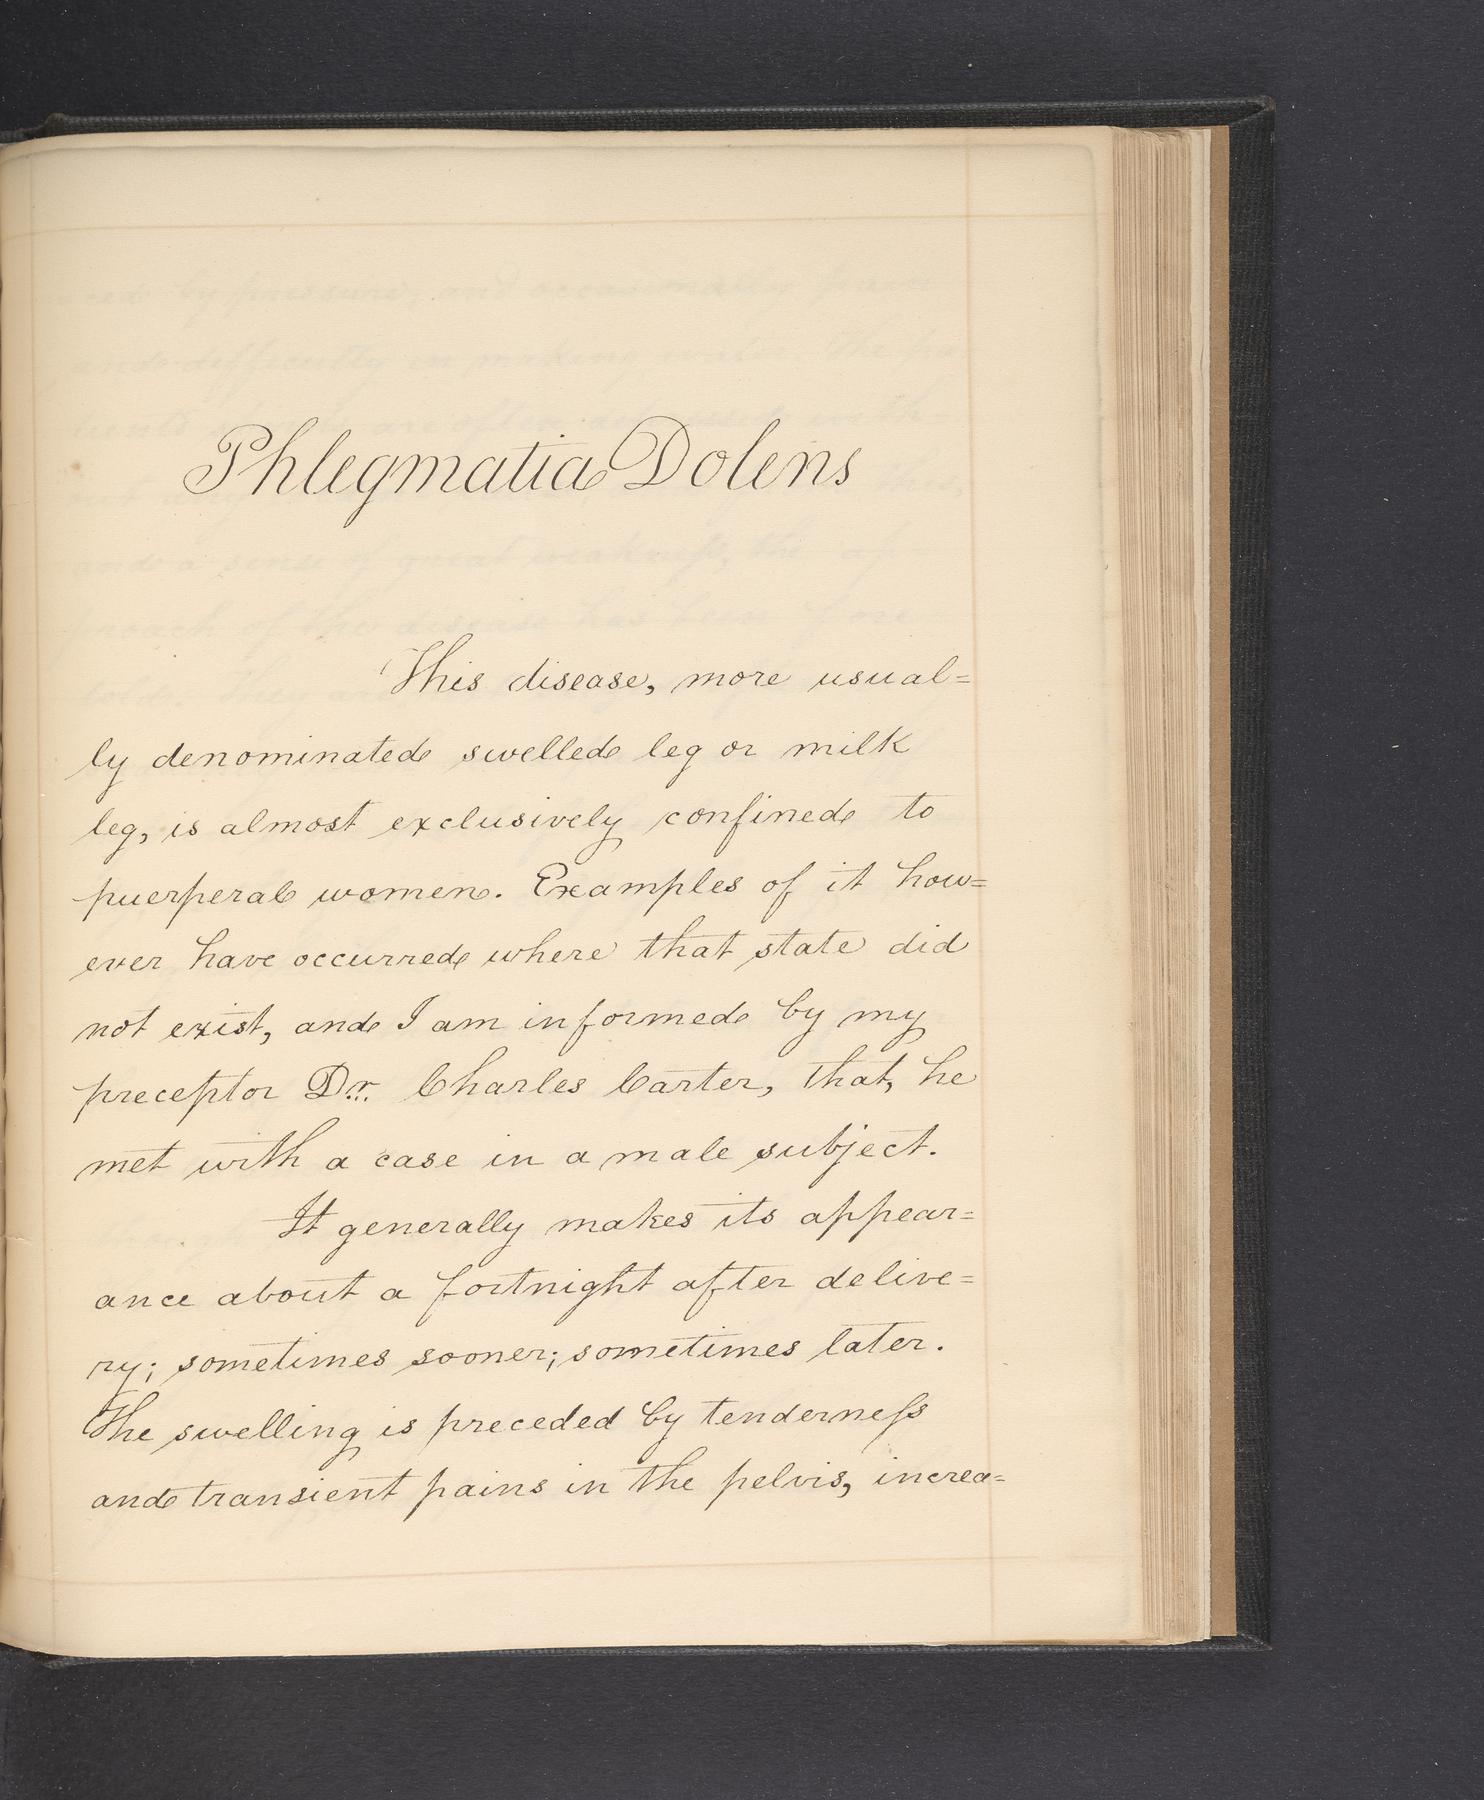 Phlegmatia Dolens
This disease, more usual=
ly denominated swelled leg or milk
leg, is almost exclusively confined to
puerperal women. Examples of it how=
ever have occurred where that state did
not exist, and I am informed by my
preceptor Dr. Charles Carter, that, he
met with a case in a male subject.
It generally makes its appear=
ance about a fortnight after delive=
ry; sometimes sooner; sometimes later.
The swelling is preceded by tenderneſs
and transient pains in the pelvis, increa=